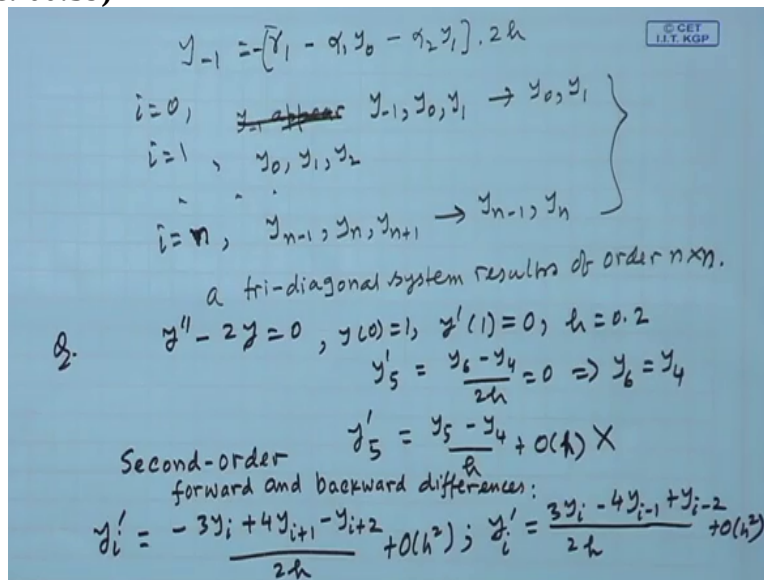 y₋₁ = -[γ₁ - α₁y₀ - α₂y₁].2h
© CET
I.I.T. KGP
i=0, y₋₁ appear y₋₁, y₀, y₁ → y₀, y₁
i=1, y₀, y₁, y₂
. . .
i=n, yₙ₋₁, yₙ, yₙ₊₁ → yₙ₋₁, yₙ
a tri-diagonal system results of order n×n.
Q. y'' - 2y = 0, y(0)=1, y'(1)=0, h=0.2
y'₅ = (y₆ - y₄)/2h = 0 => y₆ = y₄
y'₅ = (y₅ - y₄)/h + O(h) X
Second-order
forward and backward differences:
yᵢ' = (-3yᵢ + 4yᵢ₊₁ - yᵢ₊₂)/2h + O(h²); yᵢ' = (3yᵢ - 4yᵢ₋₁ + yᵢ₋₂)/2h + O(h²)